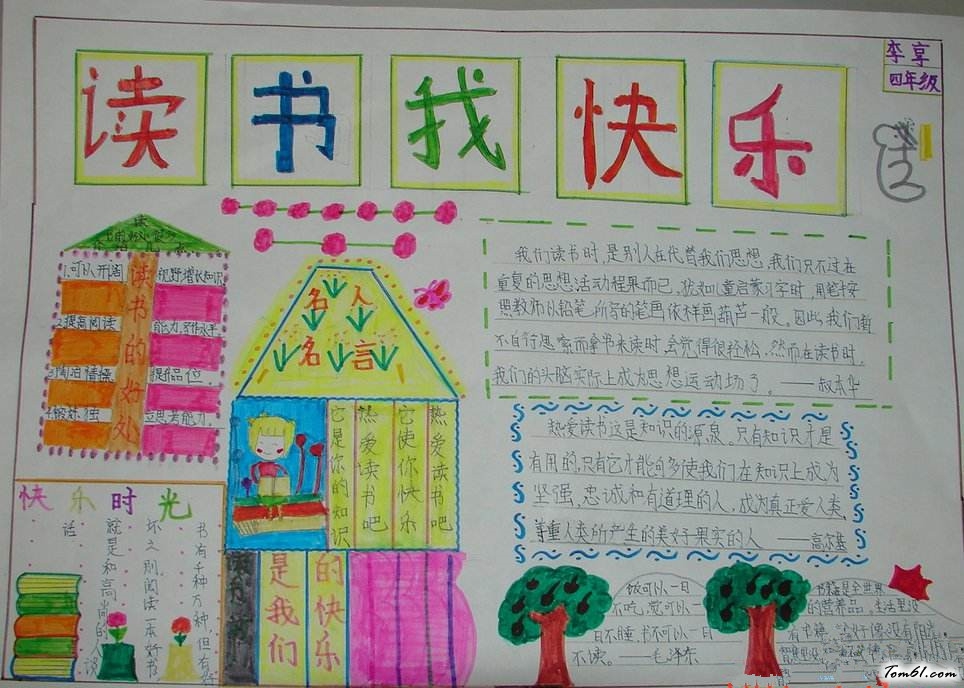 读书我快乐
李享
四年级
读
读书的好处
1.可以开阔视野增长知识
2.提高阅读能力,写作水平。
3.陶冶情操提升品位
4.锻炼独立思考能力。
名人名言
热爱读书吧
它使你快乐
热爱读书吧
它是你的知识
是我们
的快乐
快乐时光
书有千种万种,但有
坏之别阅读一本好书
就是和高尚的人谈
话
我们读书时,是别人在代替我们思想,我们只不过在
重复的思想活动程果而已,犹如儿童启蒙习字时,用笔按
照教师以铅笔所写的笔画依样画葫芦一般。因此我们
不自行思索而拿书来读时会觉得很轻松,然而在读书时,
我们的头脑实际上成为思想运动场了。——叔本华
热爱读书这是知识的源泉。只有知识才是
有用的,只有它才能的多使我们在知识上成为
坚强,忠诚和有道理的人,成为真正爱人类、
尊重人类所产生的美好果实的人 ——高尔基
饭可以一日
不吃,觉可以一
日不睡,书不可以一日
不读。——毛泽东
书籍是全世界
的营养品。生活里没
有书籍,就好像没有阳光
智慧里没
Tom61.com